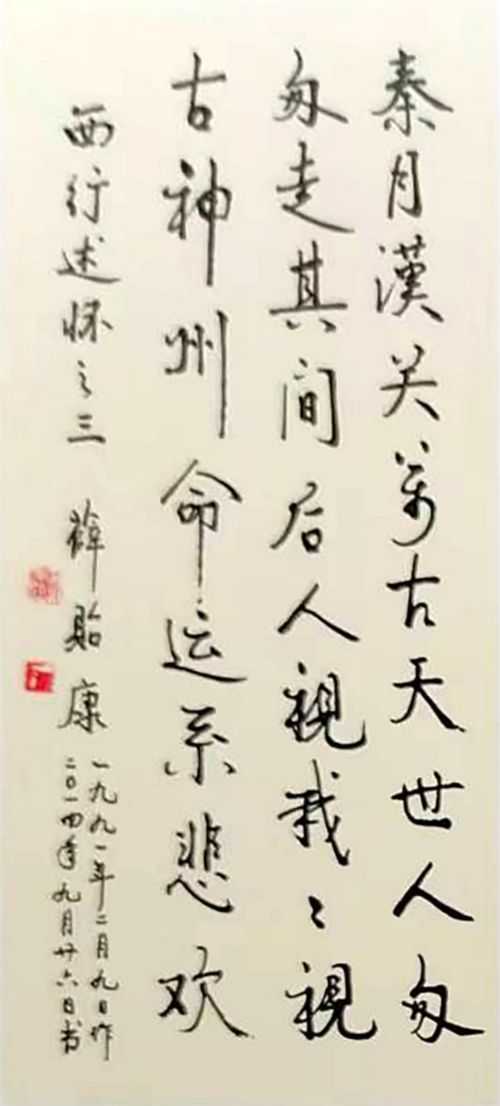 秦月漢关萬古天世人匆
匆走其间后人視我々視
古神州命运系悲欢
西行述怀之三 薛贻康
一九九一年二月九日作
二〇一四年九月廿六日书